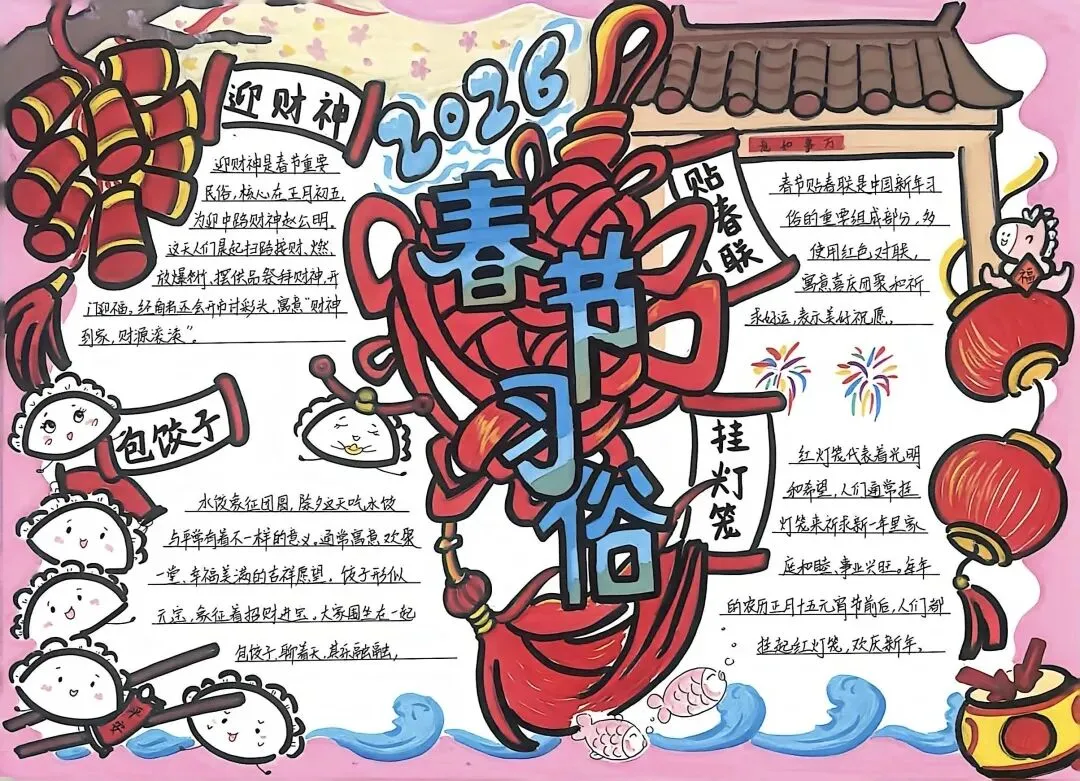 2026
春节习俗
迎财神
迎财神是春节重要
民俗,核心在正月初五,
为迎中路财神赵公明。
这天人们晨起扫路接财、燃
放爆竹,摆供品祭拜财神,开
门迎福,经商者还会开市讨彩头,寓意“财神
到家,财源滚滚”。
贴春联
春节贴春联是中国新年习
俗的重要组成部分,多
使用红色对联,
寓意喜庆团聚和祈
求好运,表示美好祝愿。
福
包饺子
水饺象征团圆,除夕这天吃水饺
与平常有着不一样的意义。通常寓意欢聚
一堂、幸福美满的吉祥愿望,饺子形似
元宝,象征着招财进宝。大家围坐在一起
包饺子,聊着天,其乐融融,
平安
挂灯笼
红灯笼代表着光明
和希望,人们通常挂
灯笼来祈求新一年里家
庭和睦、事业兴旺。每年
的农历正月十五元宵节前后,人们都
挂起红灯笼,欢庆新年。